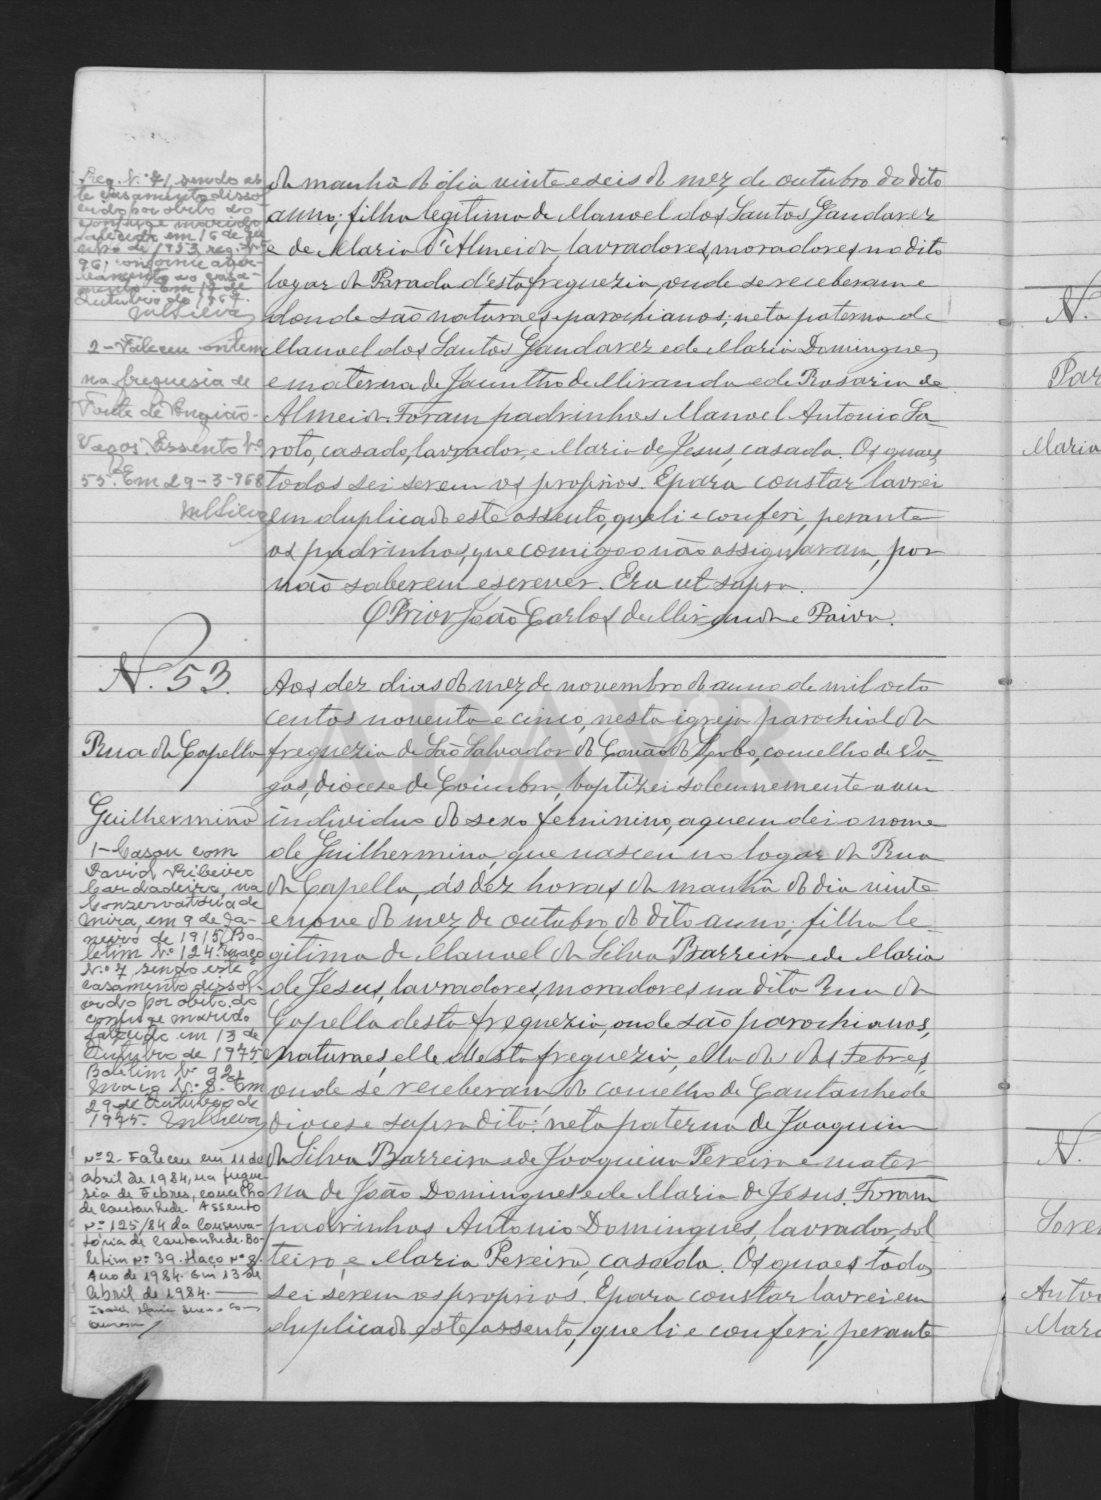 Reg. N.º 71, sendo es-
te casamento disso
lvido por obito do
conjuge marido
falecido em 16 de
de 1953, reg. N.º
96, conforme aver-
bamento ao casa-
mento. Em 17 de
Outubro de 1967.
MLSilva
2 - Faleceu ontem
na freguesia de
Fonte de Angião -
Vagos. Assento Nº
55. Em 29-3-968
MLSilva
da manhã do dia vinte e seis do mez de outubro do dito
anno; filha legitima de Manoel dos Santos Gandarez
e de Maria d'Almeida, lavradores, moradores no dito
logar da Parada d'esta freguezia, onde se receberam e
donde são naturaes e parochianos; neta paterna de
Manoel dos Santos Gandarez e de Maria Domingues
e materna de Jacintho de Miranda e de Rosaria de
Almeida. Foram padrinhos Manoel Antonio Sa-
roto, casado, lavrador, e Maria de Jesus, casada. Os quaes
todos sei serem os proprios. E para constar lavrei
em duplicado este assento, que li e conferi, perante
os padrinhos, que comigo o não assignaram, por
não saberem escrever. Era ut supra.
O Prior João Carlos de Miranda e Paiva.
N. 53.
Rua da Capella
Guilhermina
1 - Casou com
David Ribeiro
Cardadeiro, na
Conservatória de
Mira, em 9 de Ja-
neiro de 1915, Bo-
letim Nº 124. Maço
N.º 7, sendo este
casamento dissol-
vido por obito do
conjuge marido
falecido em 13 de
Outubro de 1975.
Boletim Nº 92,
Maço Nº 8. Em
29 de Outubro de
1975. MLSilva
Nº 2 - Faleceu em 11 de
abril de 1984, na fregue-
sia de Febres, concelho
de Cantanhede. Assento
nº 125/84 da Conserva-
tória de Cantanhede. Bo-
letim nº 39. Maço nº 8.
Ano de 1984. Em 13 de
Abril de 1984.
Aos dez dias do mez de novembro do anno de mil oito
centos noventa e cinco, nesta igreja parochial da
freguezia de São Salvador do Covão do Lobo, concelho de Va-
gos, diocese de Coimbra, baptizei solemnemente a um
individuo do sexo feminino, a quem dei o nome
de Guilhermina, que nasceu no logar da Rua
da Capella, ás dez horas da manhã do dia vinte
e nove do mez de outubro do dito anno; filha le-
gitima de Manoel da Silva Barreira e de Maria
de Jesus, lavradores, moradores na dita Rua da
Capella desta freguezia, onde são parochianos,
naturaes, elle desta freguezia, ella da das Febres,
onde se receberam do concelho de Cantanhede
diocese supra dita: neta paterna de Joaquim
da Silva Barreira e de Joaquina Pereira e mater
na de João Domingues e de Maria de Jesus. Foram
padrinhos Antonio Domingues, lavrador, sol
teiro, e Maria Pereira, casada. Os quaes todos
sei serem os proprios. E para constar lavrei em
duplicado este assento, que li e conferi, perante
N.
Par
Maria
N.
Antor
Mari
ADAVR